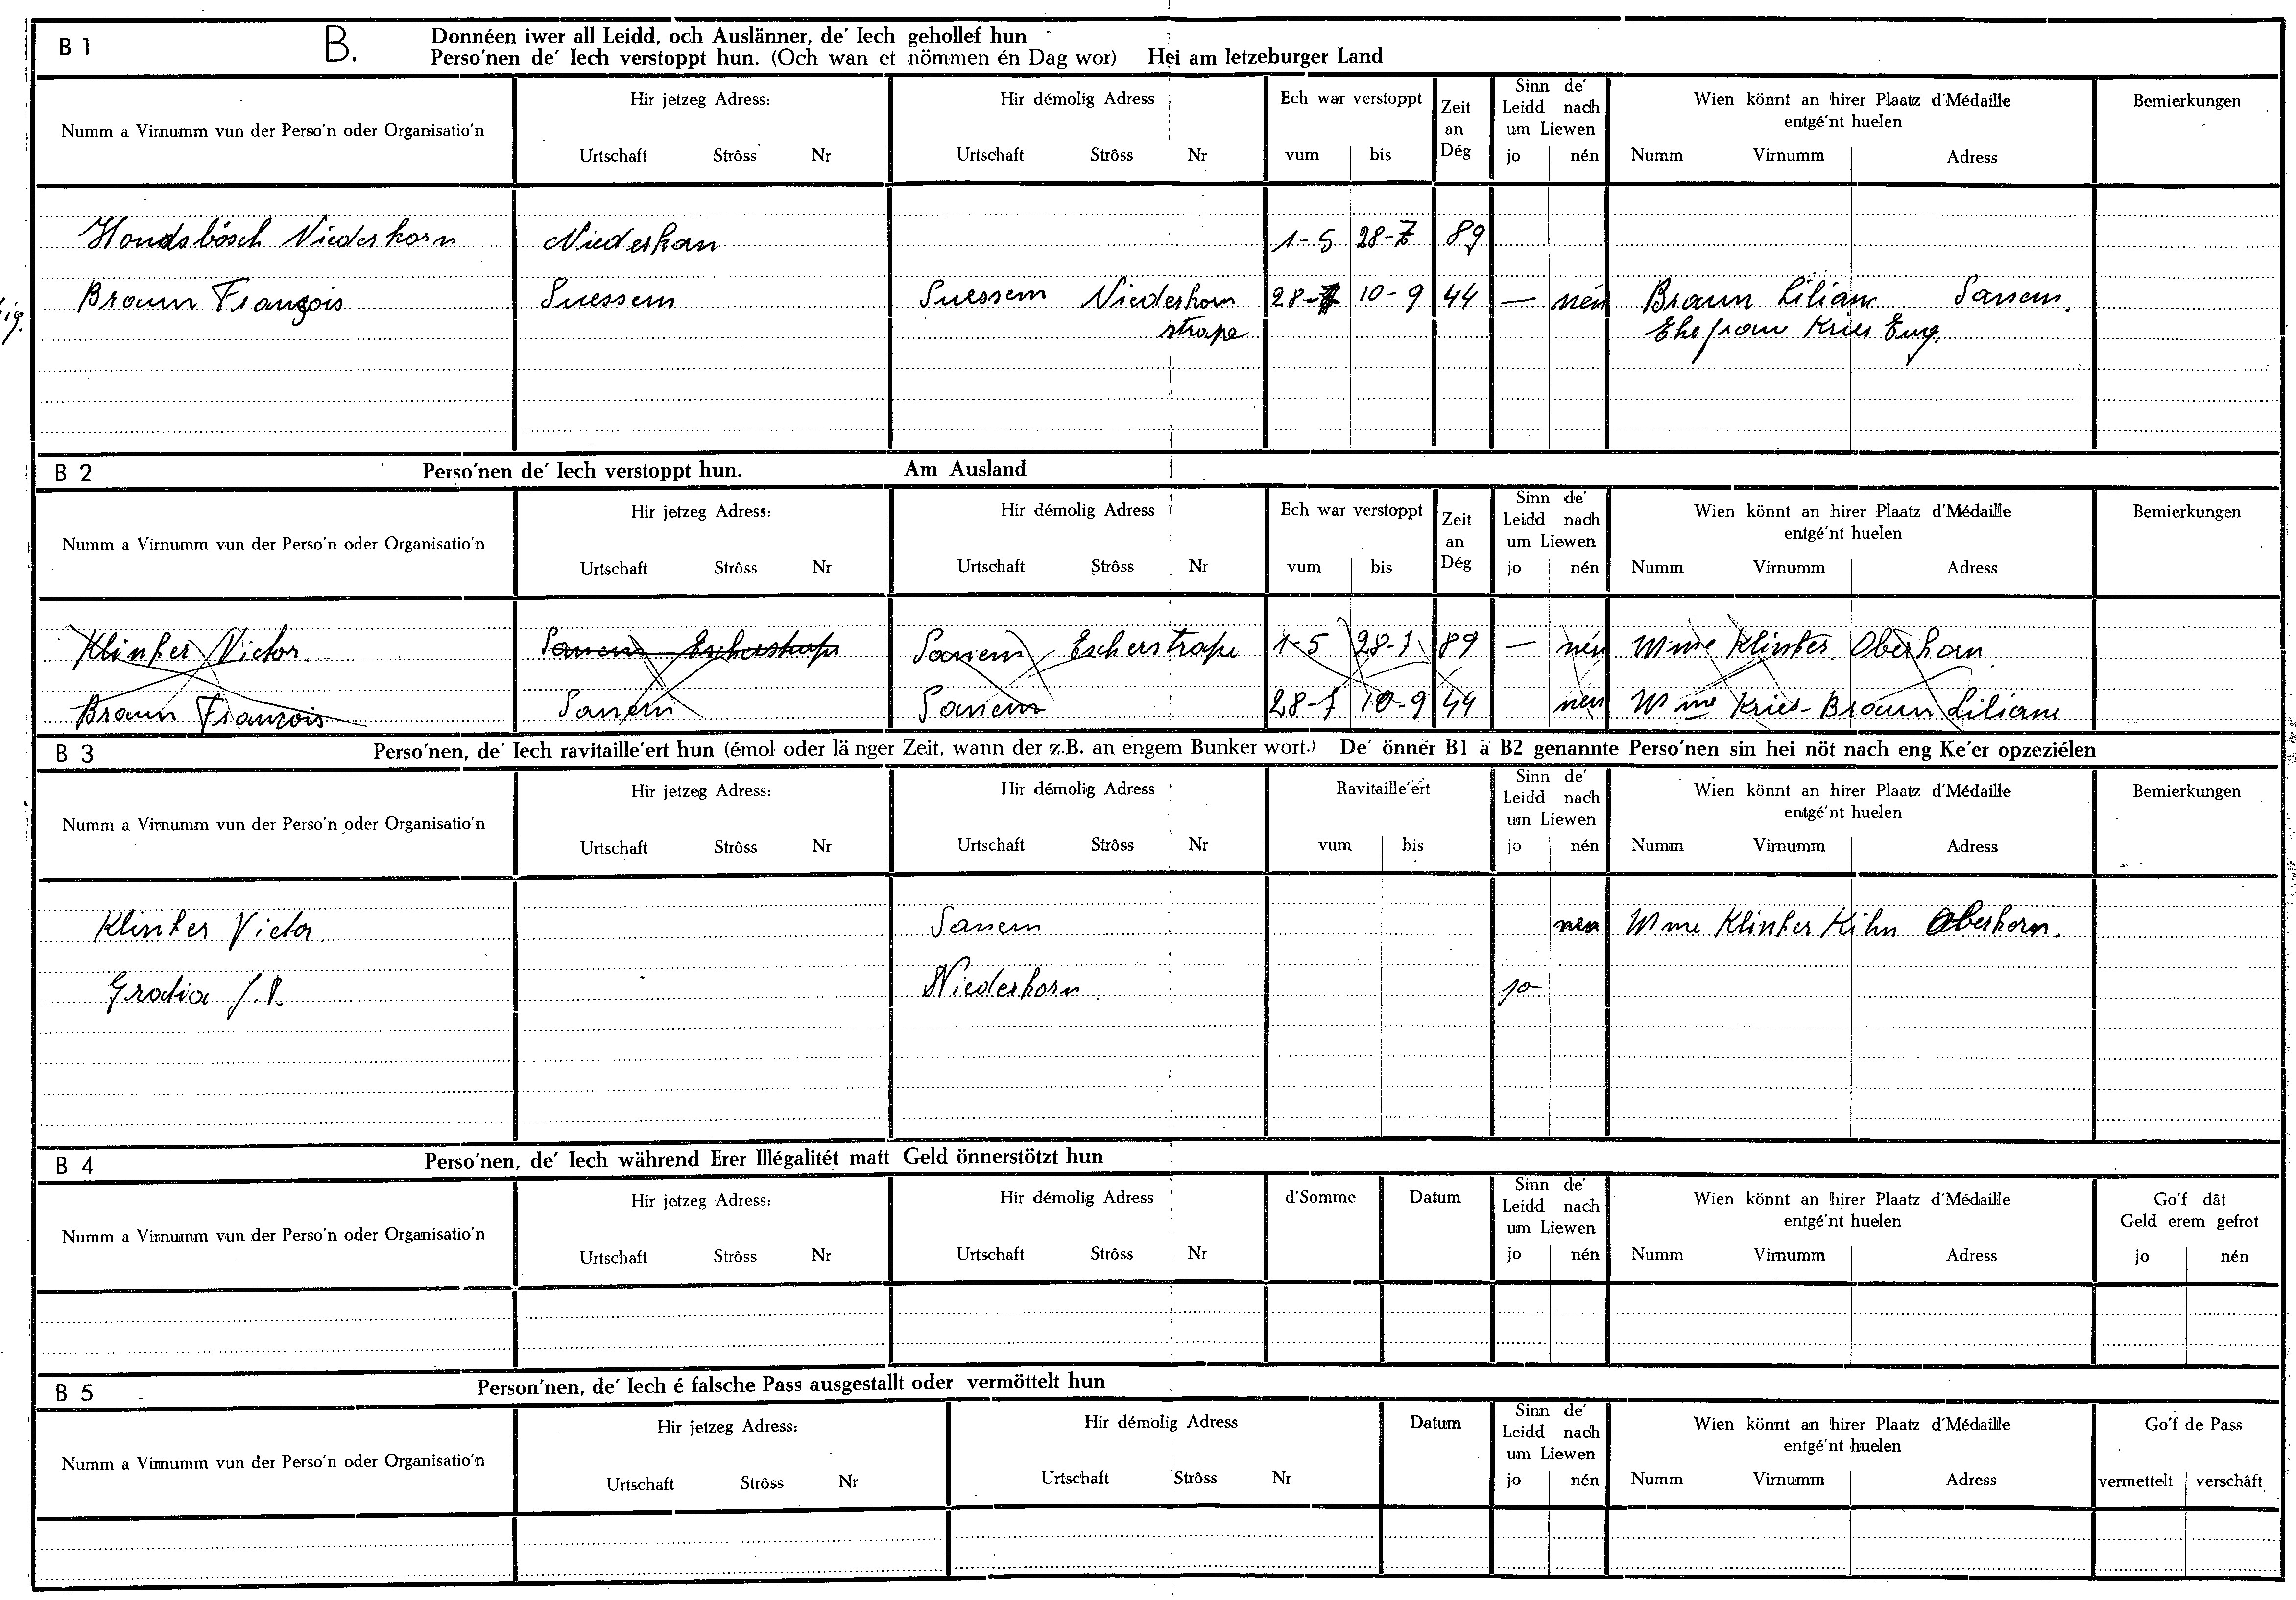 B 1 B. Donnéen iwer all Leidd, och Auslänner, de' Iech gehollef hun
Perso'nen de' Iech verstoppt hun. (Och wan et nömmen én Dag wor) Hei am letzeburger Land
Numm a Virnumm vun der Perso'n oder Organisatio'n
Hir jetzeg Adress:
Urtschaft Strôss Nr
Hir démolig Adress
Urtschaft Strôss Nr
Ech war verstoppt
vum bis
Zeit
an
Dég
Sinn de'
Leidd nach
um Liewen
jo nén
Wien könnt an hirer Plaatz d'Médaille
entgé'nt huelen
Numm Virnumm Adress
Bemierkungen
Hondsbösch Niederkorn Niederkorn 1-5 28-7 89
Braun François Suessem Suessem Niederkorn 28-7 10-9 44 — nén Braun Liliane Sanem.
straße Ehefrau Kries Eug.
B 2 Perso'nen de' Iech verstoppt hun. Am Ausland
Numm a Virnumm vun der Perso'n oder Organisatio'n
Hir jetzeg Adress:
Urtschaft Strôss Nr
Hir démolig Adress
Urtschaft Strôss Nr
Ech war verstoppt
vum bis
Zeit
an
Dég
Sinn de'
Leidd nach
um Liewen
jo nén
Wien könnt an hirer Plaatz d'Médaille
entgé'nt huelen
Numm Virnumm Adress
Bemierkungen
Klinker Victor. Sanem Escherstraße Sanem Escherstraße 1-5 28-7 89 — nén Mme Klinker Oberkorn
Braun François Sanem Sanem 28-7 10-9 44 nén Mme Kries-Braun Liliane
B 3 Perso'nen, de' Iech ravitaille'ert hun (émol oder länger Zeit, wann der z.B. an engem Bunker wort.) De' önner B1 à B2 genannte Perso'nen sin hei nöt nach eng Ke'er opzeziélen
Numm a Virnumm vun der Perso'n oder Organisatio'n
Hir jetzeg Adress:
Urtschaft Strôss Nr
Hir démolig Adress
Urtschaft Strôss Nr
Ravitaille'ert
vum bis
Sinn de'
Leidd nach
um Liewen
jo nén
Wien könnt an hirer Plaatz d'Médaille
entgé'nt huelen
Numm Virnumm Adress
Bemierkungen
Klinker Victor. Sanem nen Mme Klinker Kihn Oberkorn.
Gratia J.P. Niederkorn. jo
B 4 Perso'nen, de' Iech während Erer Illégalitét matt Geld önnerstötzt hun
Numm a Virnumm vun der Perso'n oder Organisatio'n
Hir jetzeg Adress:
Urtschaft Strôss Nr
Hir démolig Adress
Urtschaft Strôss Nr
d'Somme
Datum
Sinn de'
Leidd nach
um Liewen
jo nén
Wien könnt an hirer Plaatz d'Médaille
entgé'nt huelen
Numm Virnumm Adress
Go'f dât
Geld erem gefrot
jo nén
B 5 Person'nen, de' Iech é falsche Pass ausgestallt oder vermöttelt hun
Numm a Virnumm vun der Perso'n oder Organisatio'n
Hir jetzeg Adress:
Urtschaft Strôss Nr
Hir démolig Adress
Urtschaft Strôss Nr
Datum
Sinn de'
Leidd nach
um Liewen
jo nén
Wien könnt an hirer Plaatz d'Médaille
entgé'nt huelen
Numm Virnumm Adress
Go'f de Pass
vermettelt verschâft